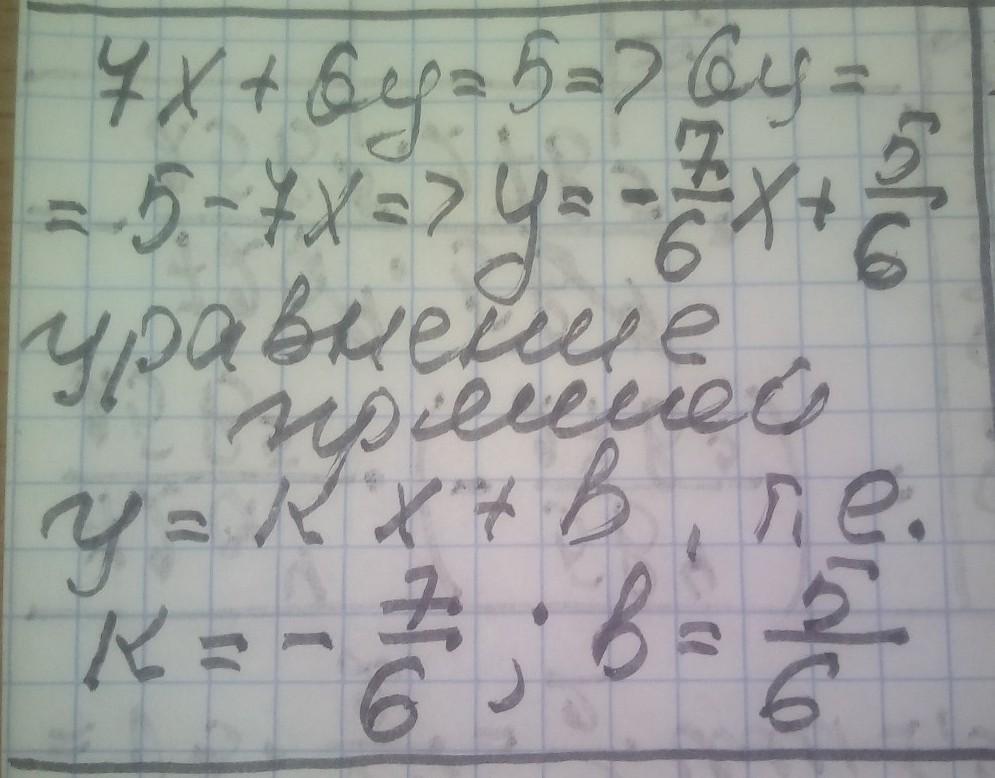 7x + 6y = 5 => 6y =
= 5 - 7x => y = -7/6 x + 5/6
уравнение
прямой
y = к x + в, т.е.
к = - 7/6 ; в = 5/6